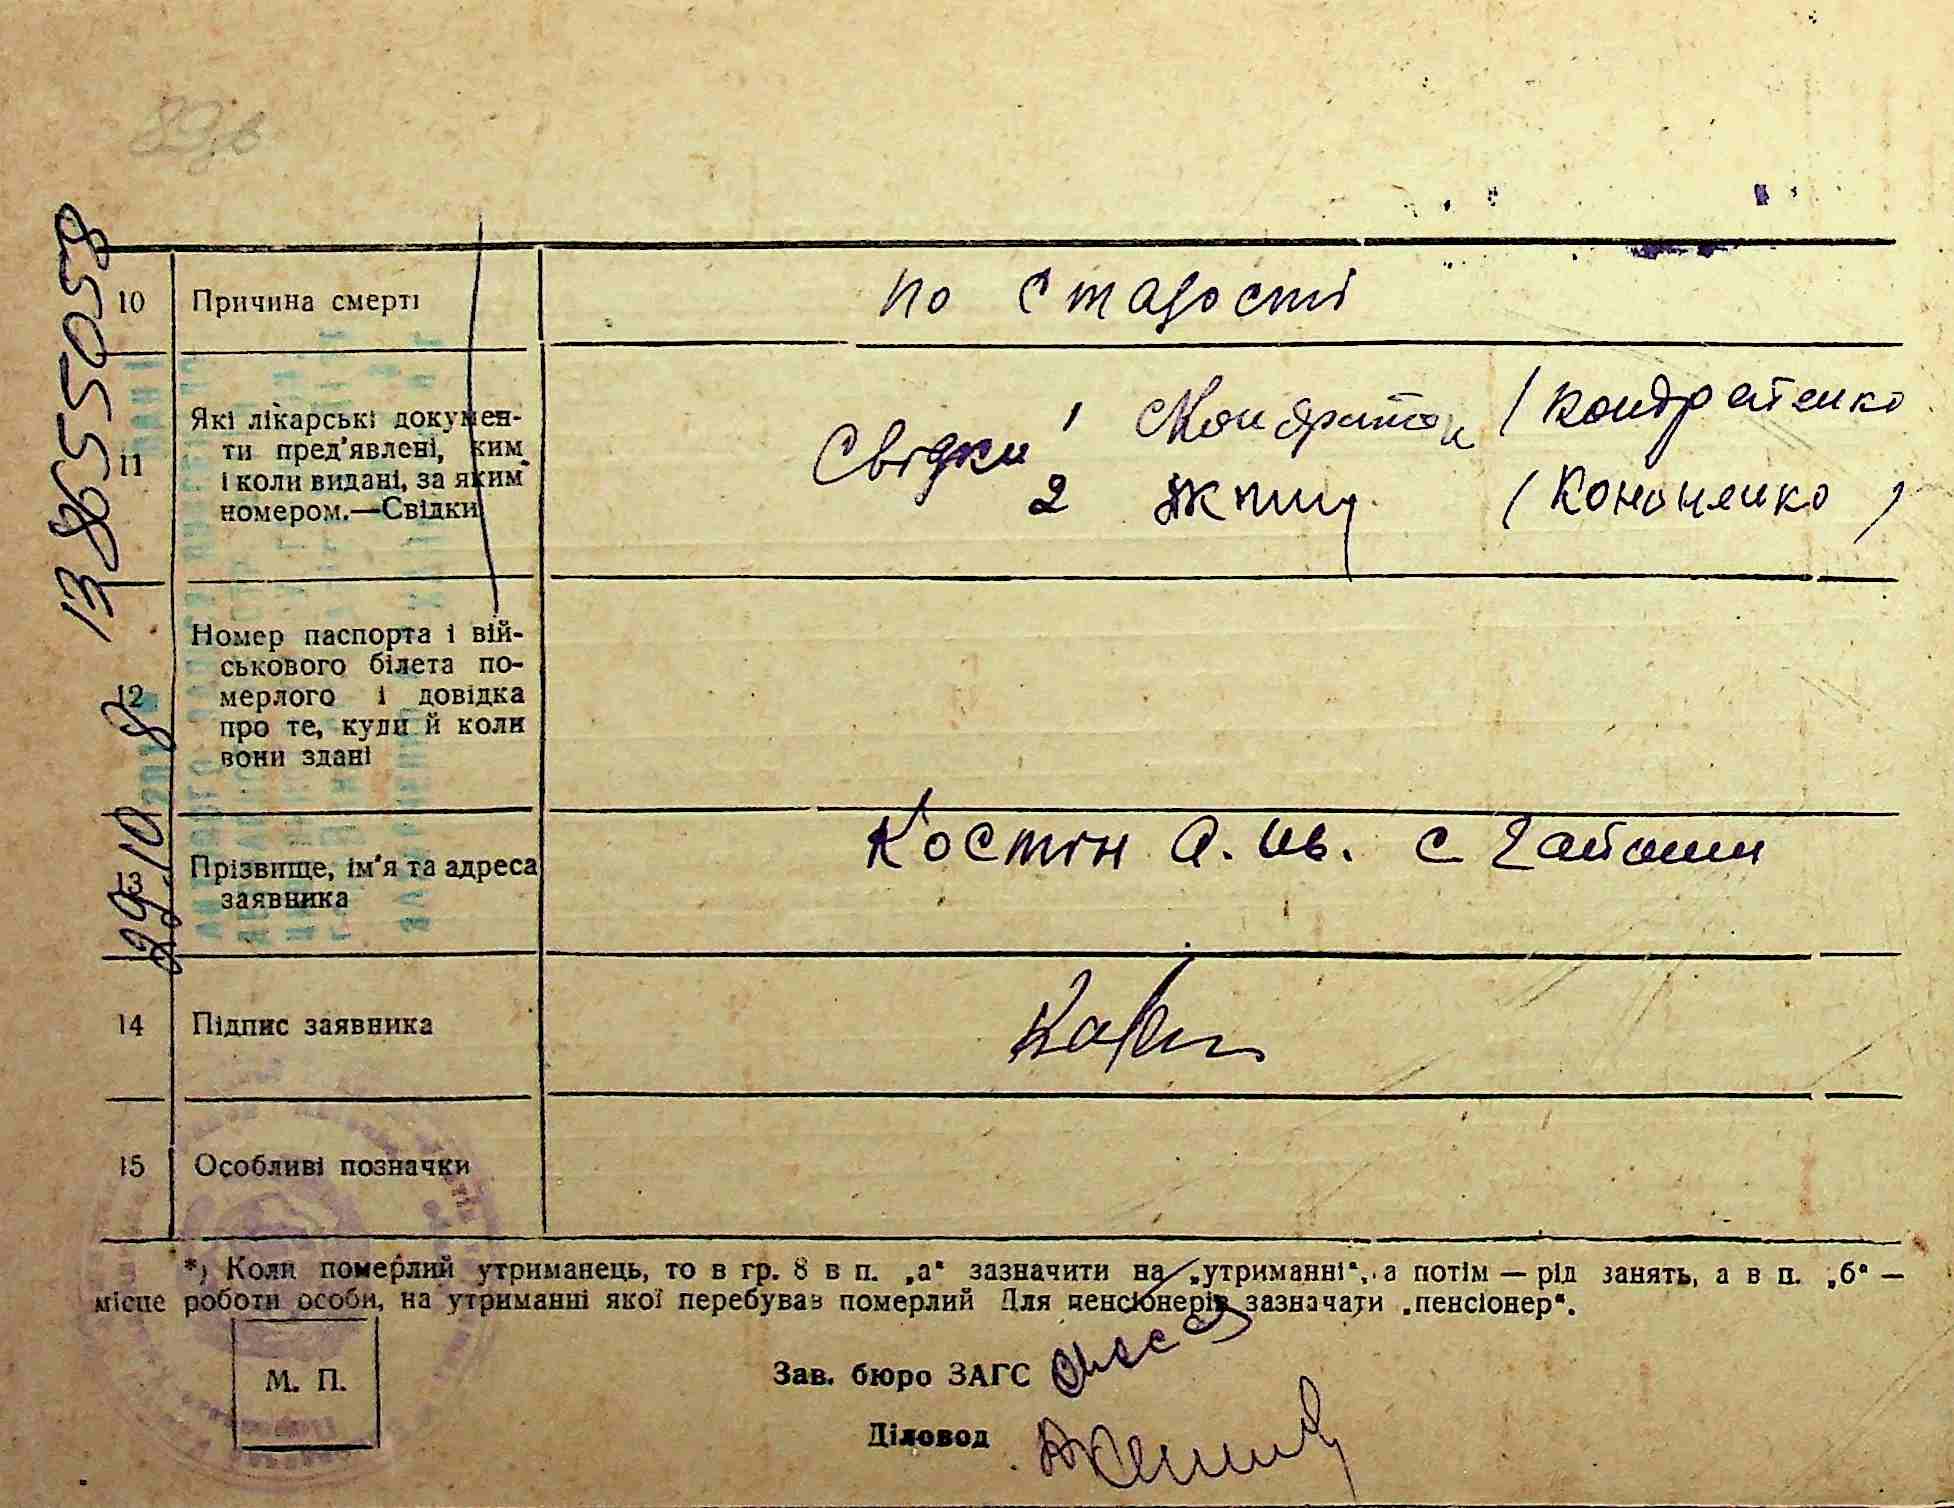 89
13 8655058
29.10 8
10 Причина смерті по старості
11 Які лікарські докумен-
ти пред'явлені, ким
і коли видані, за яким
номером.—Свідки
Свідки 1 (Кондратенко
2 (Кононенко)
12 Номер паспорта і вій-
ськового білета по-
мерлого і довідка
про те, куди й коли
вони здані
13 Прізвище, ім'я та адреса
заявника
Костін А. Ив. с Гайошин
14 Підпис заявника
15 Особливі позначки
*) Коли померлий утриманець, то в гр. 8 в п. „а" зазначити на „утриманні", а потім — рід занять, а в п. „б" —
місце роботи особи, на утриманні якої перебував померлий Для пенсіонерів зазначати „пенсіонер".
М. П.
Зав. бюро ЗАГС
Діловод